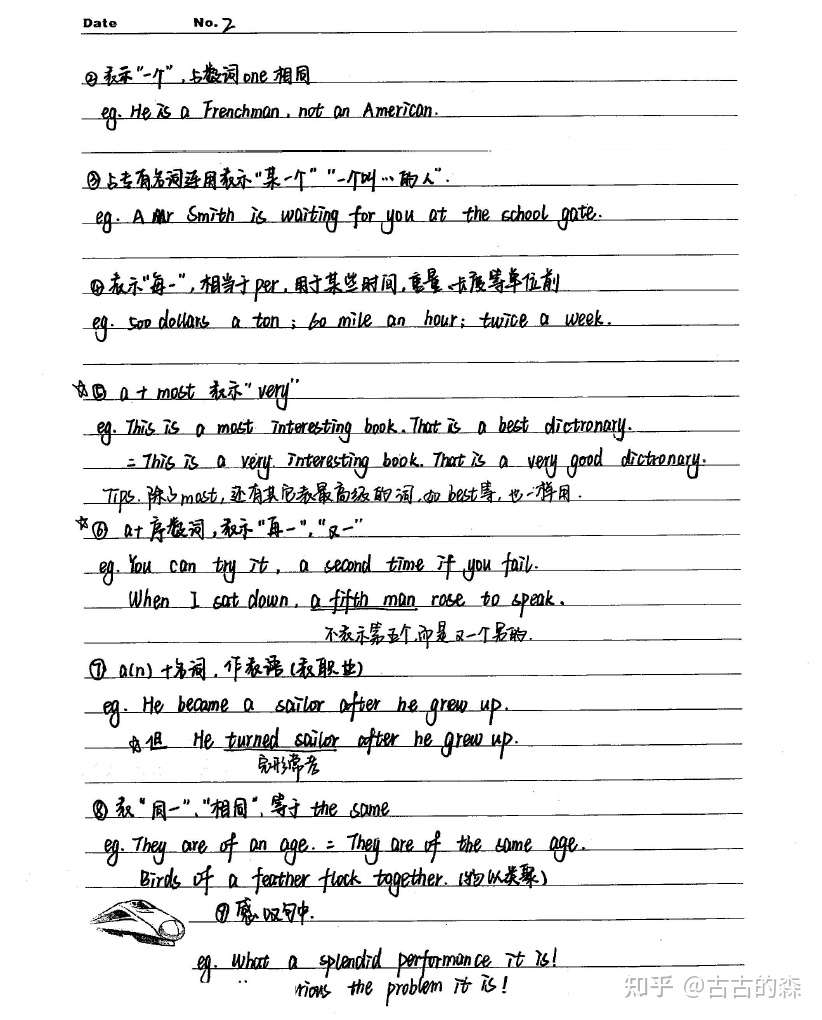 Date No. 2
②表示"一个",与数词one相同
eg. He is a Frenchman, not an American.
③与专有名词连用表示"某一个" "一个叫…的人".
eg. A Mr Smith is waiting for you at the school gate.
④表示"每一",相当于per,用于某些时间,重量、长度等单位前
eg. 500 dollars a ton; 60 mile an hour; twice a week.
☆⑤ a + most 表示"very"
eg. This is a most interesting book. That is a best dictronary.
= This is a very interesting book. That is a very good dictronary.
Tips. 除了most,还有其它表最高级的词,如best等,也一样用.
☆⑥ a+序数词,表示"再一","又一"
eg. You can try it, a second time if you fail.
When I sat down, a fifth man rose to speak.
不表示第五个,而是又一个另的.
⑦ a(n)+名词,作表语(表职业)
eg. He became a sailor after he grew up.
☆但 He turned sailor after he grew up.
完形常考
⑧表"同一"、"相同",等于the same
eg. They are of an age. = They are of the same age.
Birds of a feather flock together. (物以类聚)
⑨感叹句中.
eg. What a splendid performance it is!
the problem it is!
知乎 @古古的森